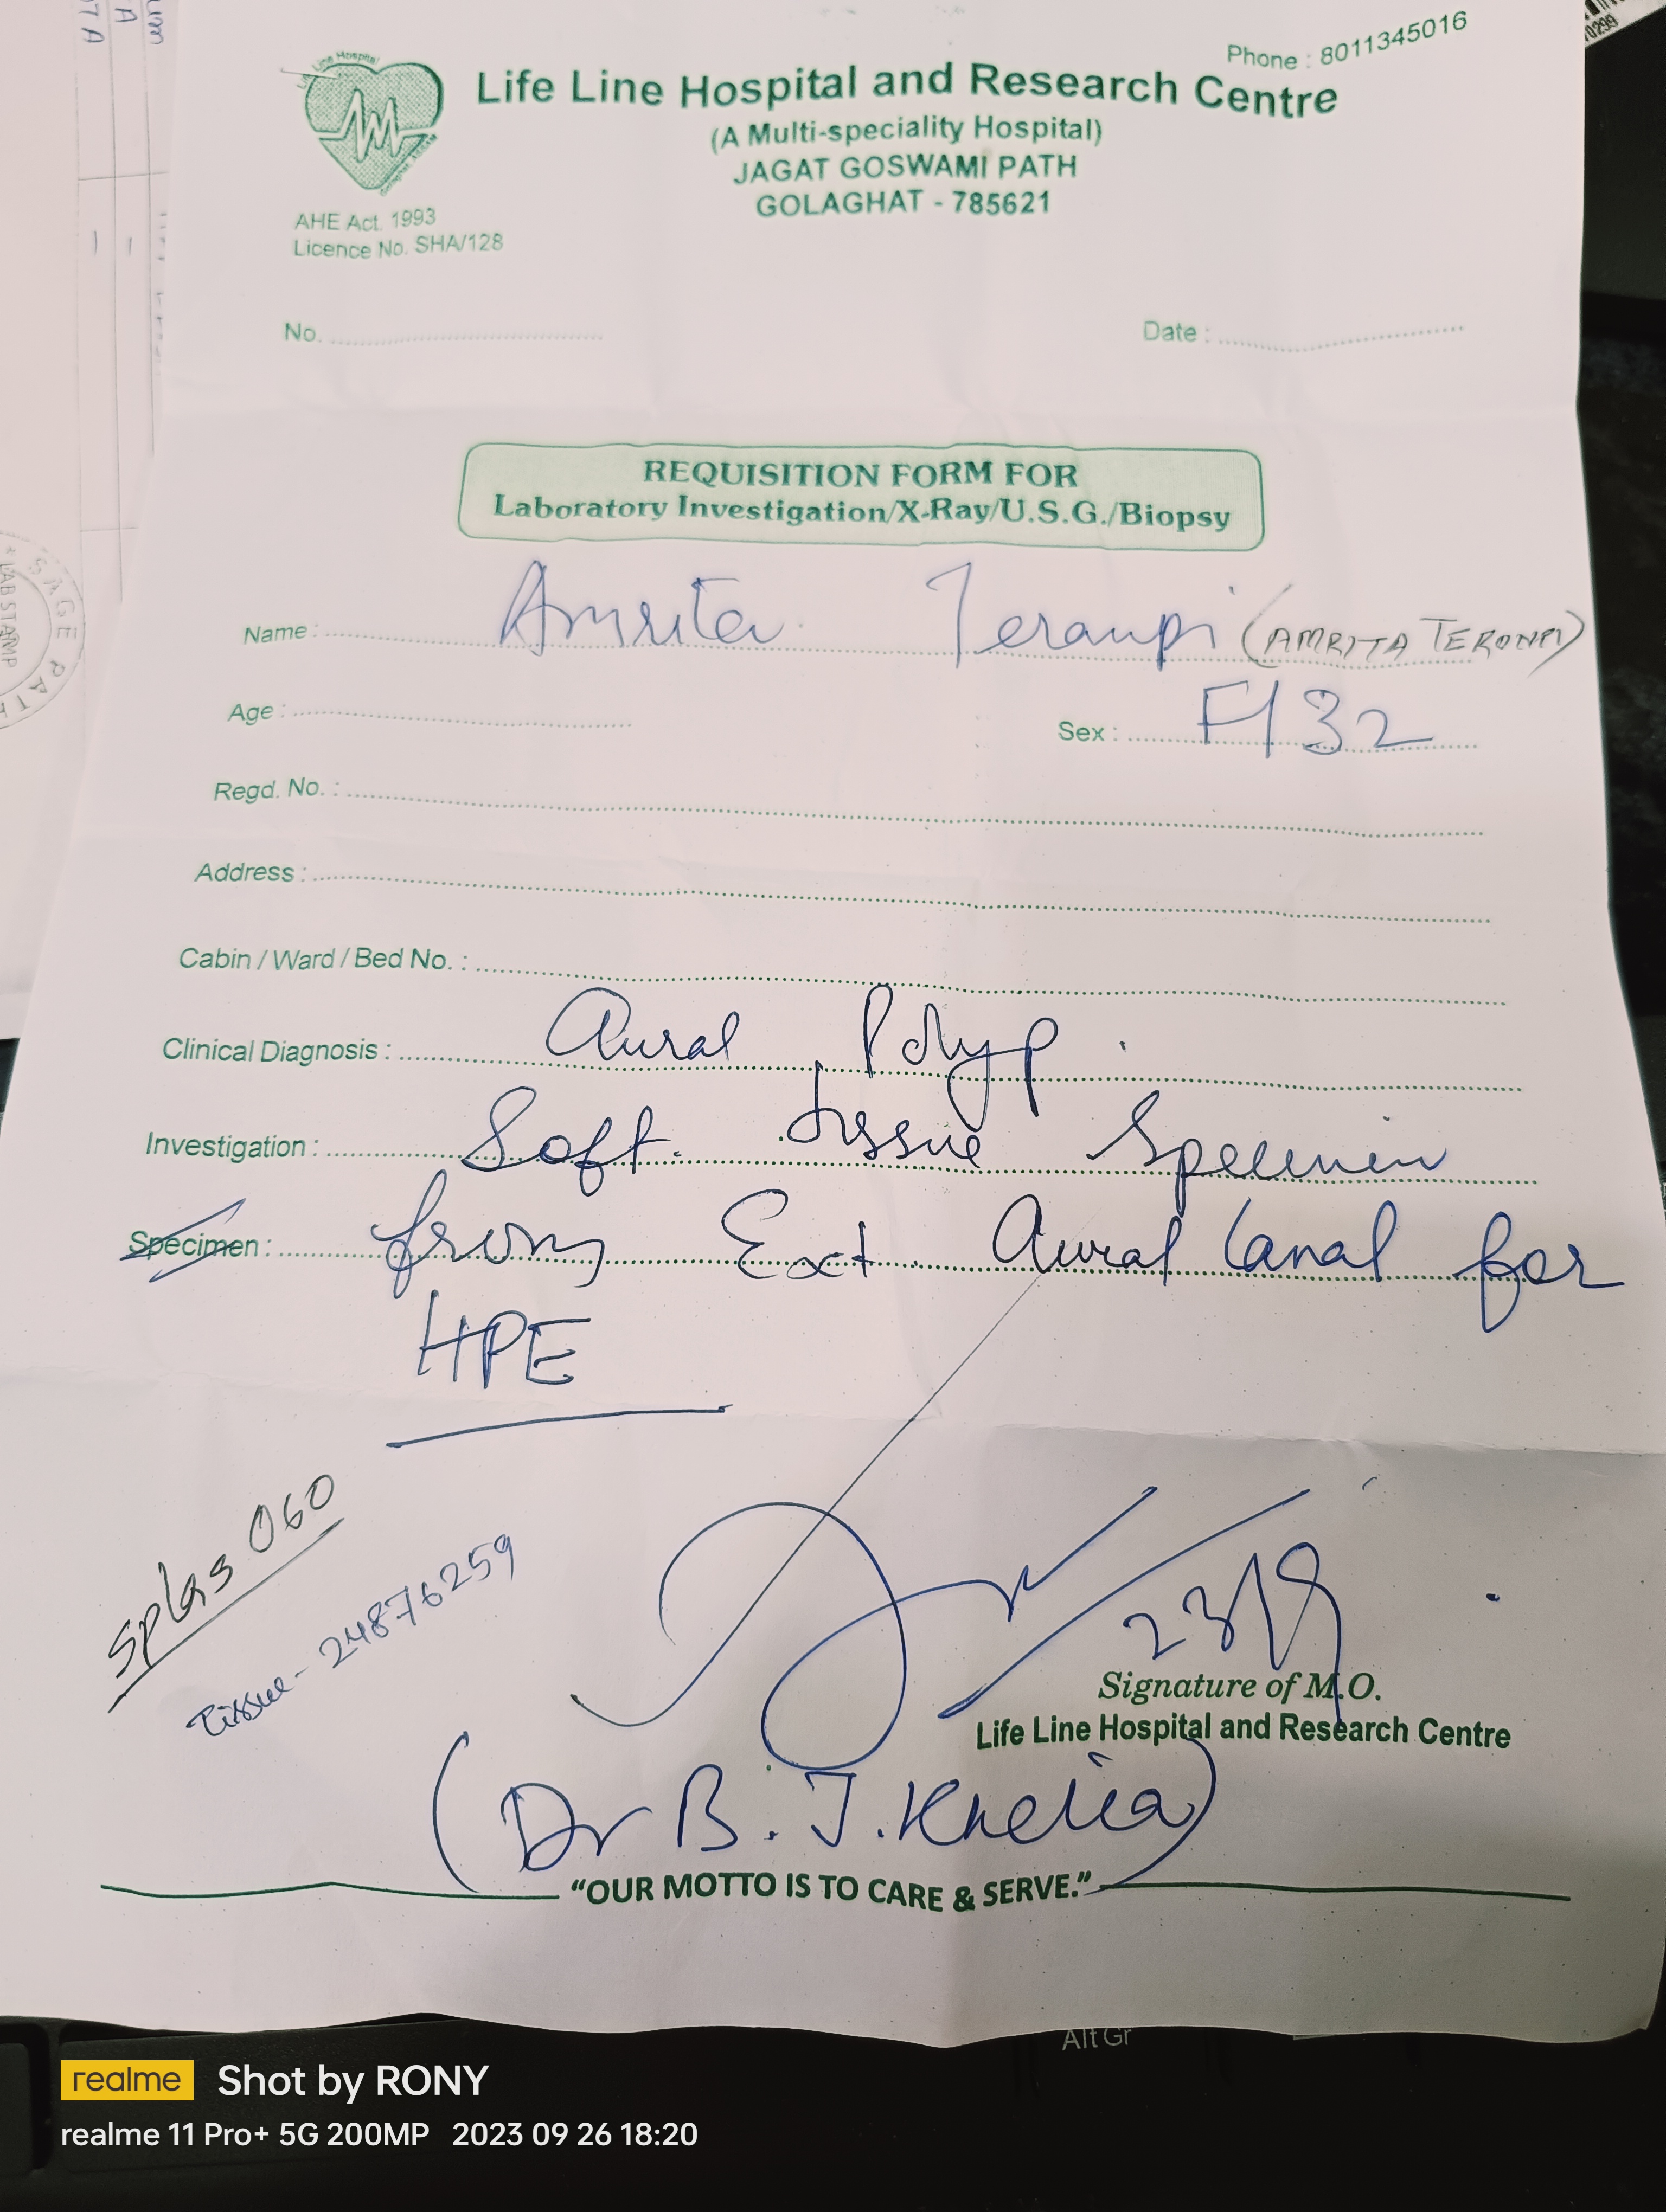 Phone : 8011345016
Life Line Hospital
Life Line Hospital and Research Centre
(A Multi-speciality Hospital)
JAGAT GOSWAMI PATH
GOLAGHAT - 785621
AHE Act. 1993
Licence No. SHA/128
No. Date :
REQUISITION FORM FOR
Laboratory Investigation/X-Ray/U.S.G./Biopsy
Name : Amrita Teranpi (AMRITA TERONPI)
Age : Sex : F/32
Regd. No. :
Address :
Cabin / Ward / Bed No. :
Clinical Diagnosis : Aural Polyp.
Investigation : Soft. tissue Specimen
Specimen : from Ext. Aural Canal for
HPE
Splas 060
Tissue- 24876259
23/9
Signature of M.O.
Life Line Hospital and Research Centre
(Dr B. J. Khelia)
“OUR MOTTO IS TO CARE & SERVE.”
Alt Gr
realme Shot by RONY
realme 11 Pro+ 5G 200MP 2023 09 26 18:20
SAGE PATH
LAB STAMP
0299